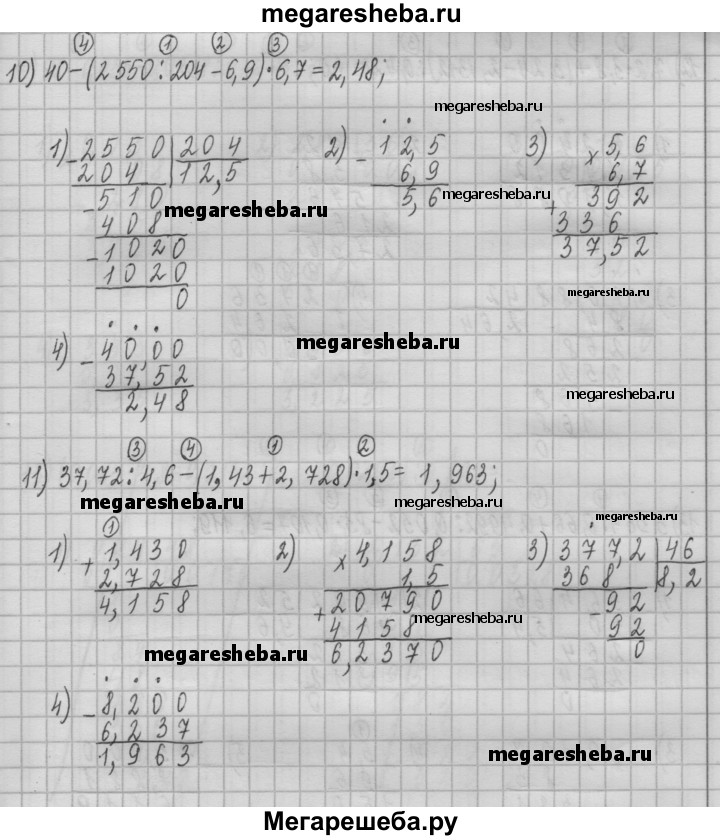 megaresheba.ru
④ ① ② ③
10) 40-(2550:204-6,9)·6,7=2,48;
megaresheba.ru
1) -2550|204 2) -12,5 3) ×5,6
204 |12,5 6,9 6,7
-510 5,6 392
megaresheba.ru megaresheba.ru
408 +336
-1020 37,52
1020
0
megaresheba.ru
4) -40,00
megaresheba.ru
37,52
2,48
megaresheba.ru
③ ④ ① ②
11) 37,72:4,6-(1,43+2,728)·1,5=1,963;
megaresheba.ru megaresheba.ru
megaresheba.ru
①
1) +1,430 2) ×4,158 3) 377,2|46
2,728 1,5 368 |8,2
4,158 +20790 -92
4158 92
megaresheba.ru
6,2370 0
megaresheba.ru
4) -8,200
6,237
1,963
megaresheba.ru
Мегарешеба.ру